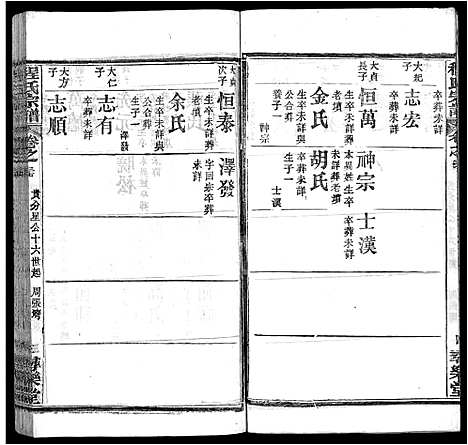 大起子
志宏
卒葬未詳
大貞長子
恒萬
生卒未詳葬老墳
神宗
本異姓生卒葬未詳
士漢
卒葬未詳
金氏
生卒未詳葬老墳
養子一
神宗
胡氏
生卒葬未詳
生子一
士漢
大貞次子
恒泰
生卒未詳葬老墳
澤發
字回泰卒葬未詳
余氏
生卒未詳
公合葬
生子一
澤發
大仁子
志有
卒葬未詳
大方子
志順
卒葬未詳
程氏宗譜
卷之
貴分星公十六世起
周張灣
華樂堂